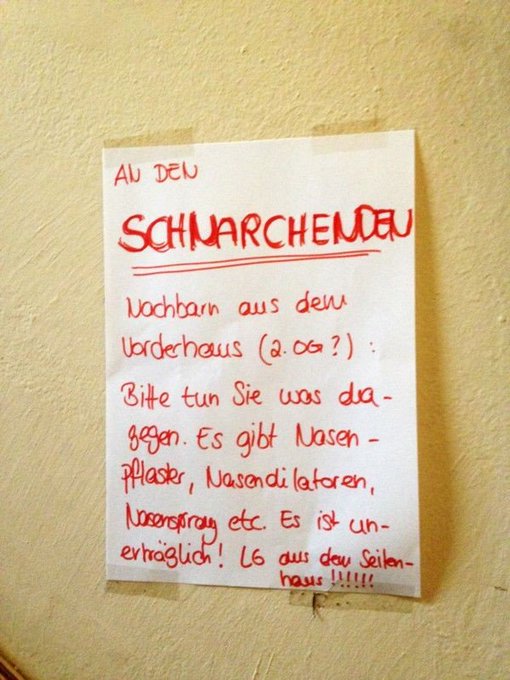 AN DEN
SCHNARCHENDEN
Nachbarn aus dem
Vorderhaus (2. OG?):
Bitte tun Sie was da-
gegen. Es gibt Nasen-
pflaster, Nasendilatoren,
Nasenspray etc. Es ist un-
erträglich! LG aus dem Seiten-
haus!!!!!!